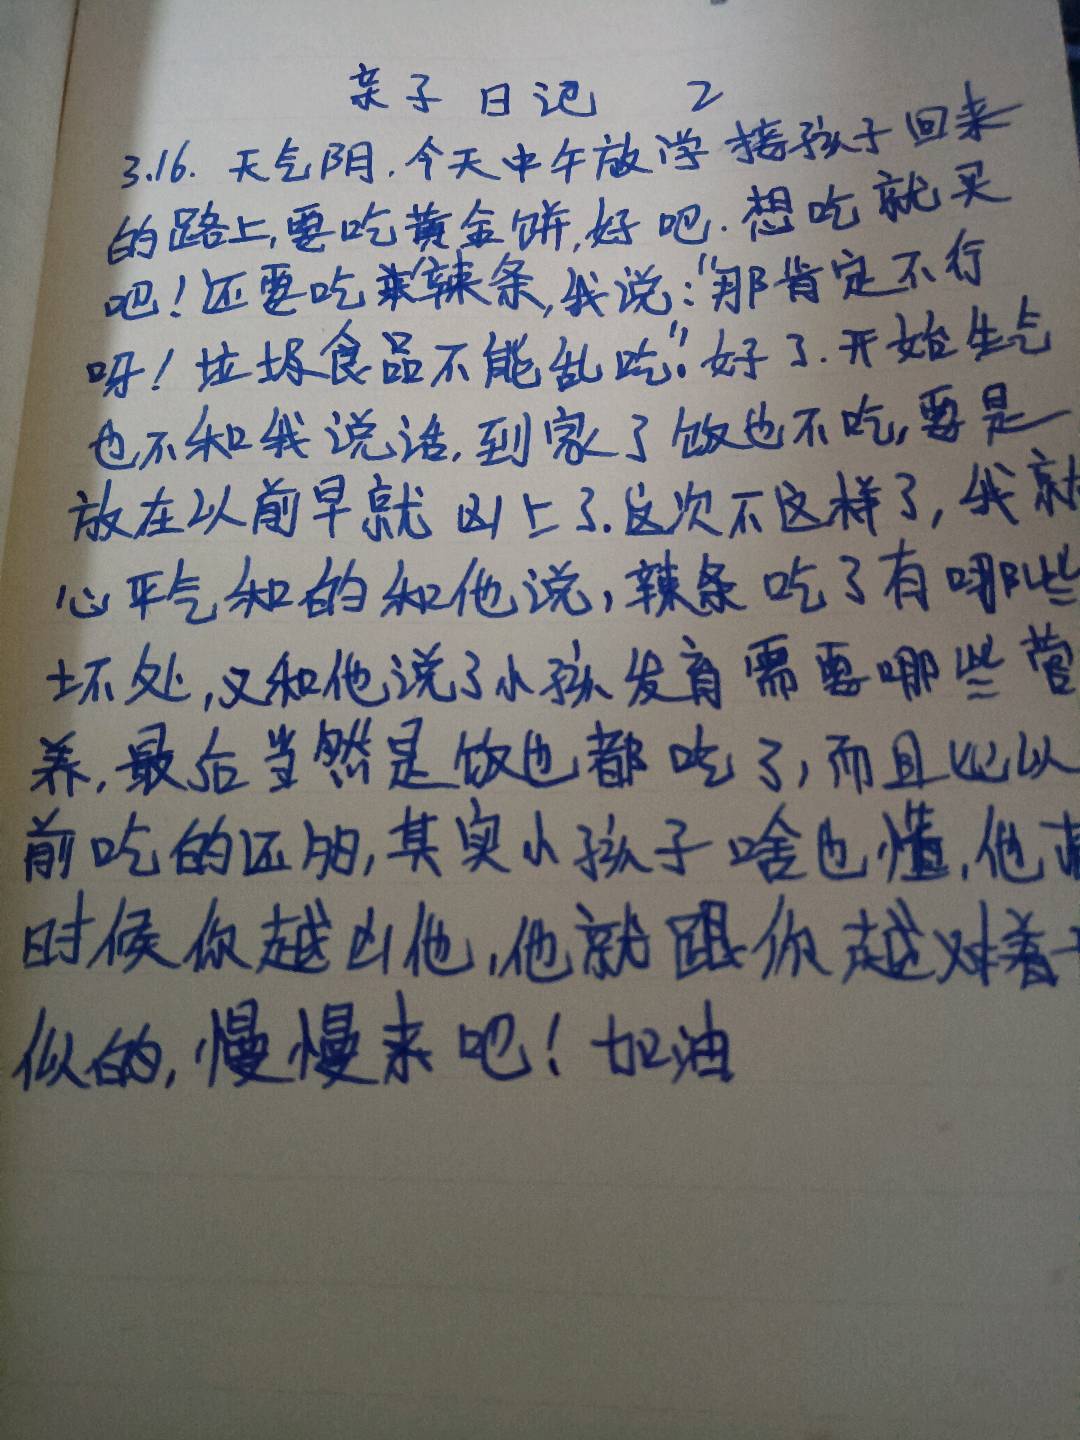 亲子日记 2
3.16. 天气阴.今天中午放学接孩子回来
的路上,要吃黄金饼,好吧.想吃就买
吧!还要吃辣条,我说:"那肯定不行
呀!垃圾食品不能乱吃."好了.开始生气
也不和我说话,到家了饭也不吃,要是
放在以前早就凶上了.这次不这样了,我就
心平气和的和他说,辣条吃了有哪些
坏处,又和他说了小孩发育需要哪些营
养,最后当然是饭也都吃了,而且比以
前吃的还多,其实小孩子啥也懂,他
时候你越凶他,他就跟你越对着干
似的,慢慢来吧!加油